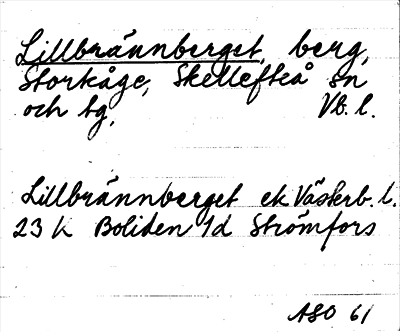 Lillbrännberget, berg,
Storkåge, Skellefteå sn
och tg, Vb. l.
Lillbrännberget ek Västerb. l.
23 K Boliden 1d Strömfors
ASO 61